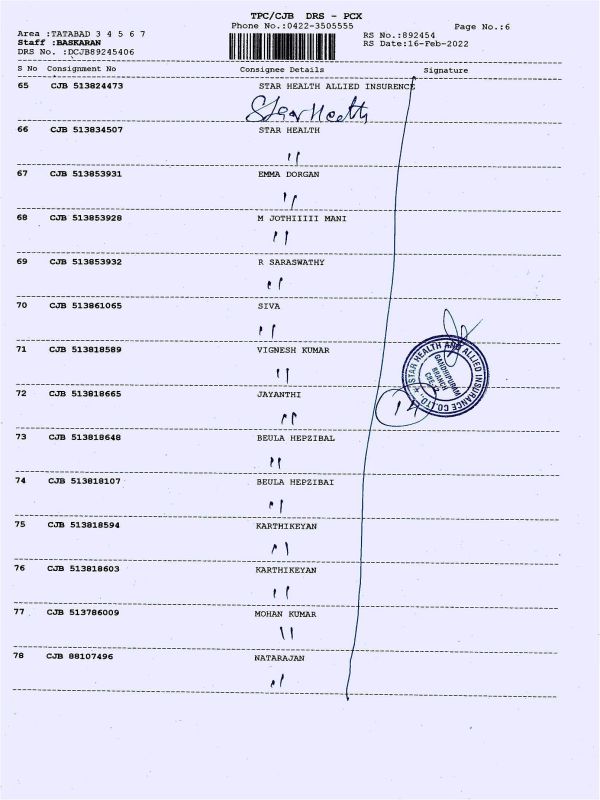 TPC/CJB DRS - PCX
Phone No.:0422-3505555
Page No.:6
Area :TATABAD 3 4 5 6 7
RS No.:892454
Staff :BASKARAN
RS Date:16-Feb-2022
DRS No. :DCJB89245406
S No Consignment No Consignee Details Signature
65 CJB 513824473 STAR HEALTH ALLIED INSURENCE
Star Health
66 CJB 513834507 STAR HEALTH
"
67 CJB 513853931 EMMA DORGAN
"
68 CJB 513853928 M JOTHIIIII MANI
"
69 CJB 513853932 R SARASWATHY
"
70 CJB 513861065 SIVA
"
71 CJB 513818589 VIGNESH KUMAR
"
STAR HEALTH AND ALLIED INSURANCE CO.LTD.,
GANDHIPURAM
BRANCH
72 CJB 513818665 JAYANTHI
14
"
73 CJB 513818648 BEULA HEPZIBAL
"
74 CJB 513818107 BEULA HEPZIBAI
"
75 CJB 513818594 KARTHIKEYAN
"
76 CJB 513818603 KARTHIKEYAN
"
77 CJB 513786009 MOHAN KUMAR
"
78 CJB 88107496 NATARAJAN
"